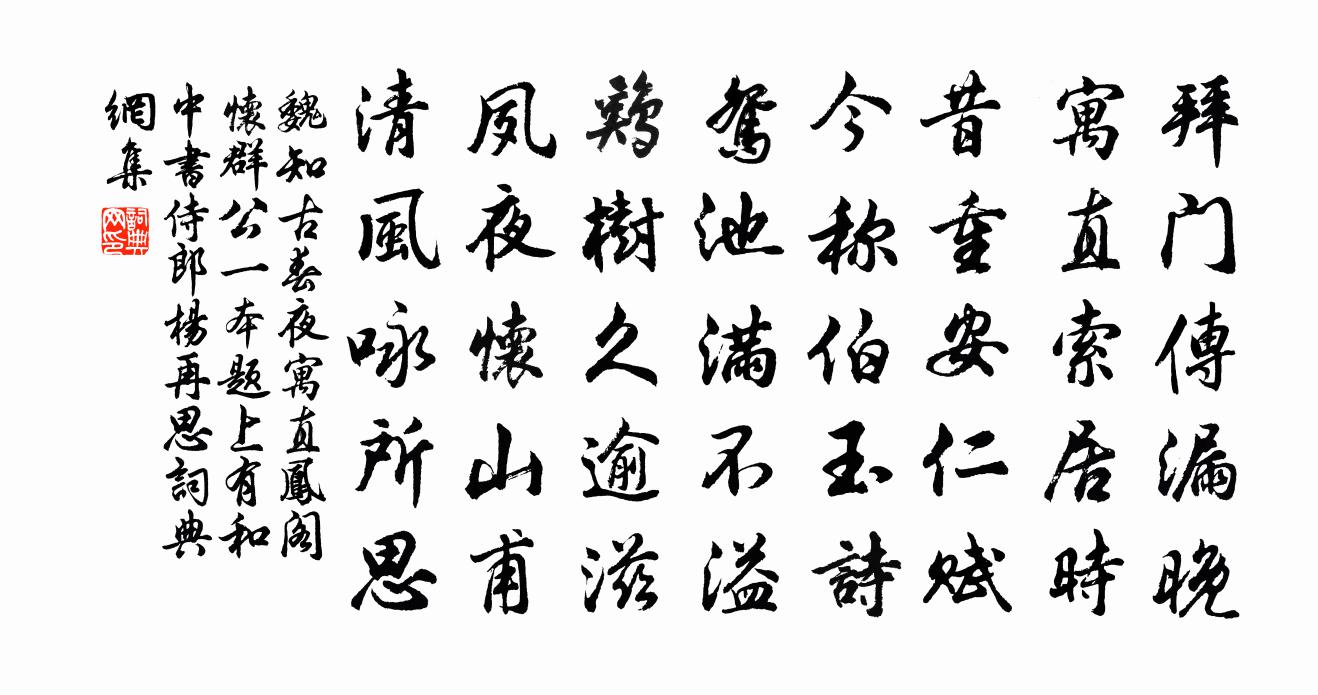 拜門傳漏晚
寓直索居時
昔重安仁賦
今称伯玉詩
鴛池滿不溢
鷄樹久逾滋
夙夜懷山甫
清風咏所思
魏知古春夜寓直鳳閣
懷群公一本題上有和
中書侍郎楊再思詞典
網集
詞典网印